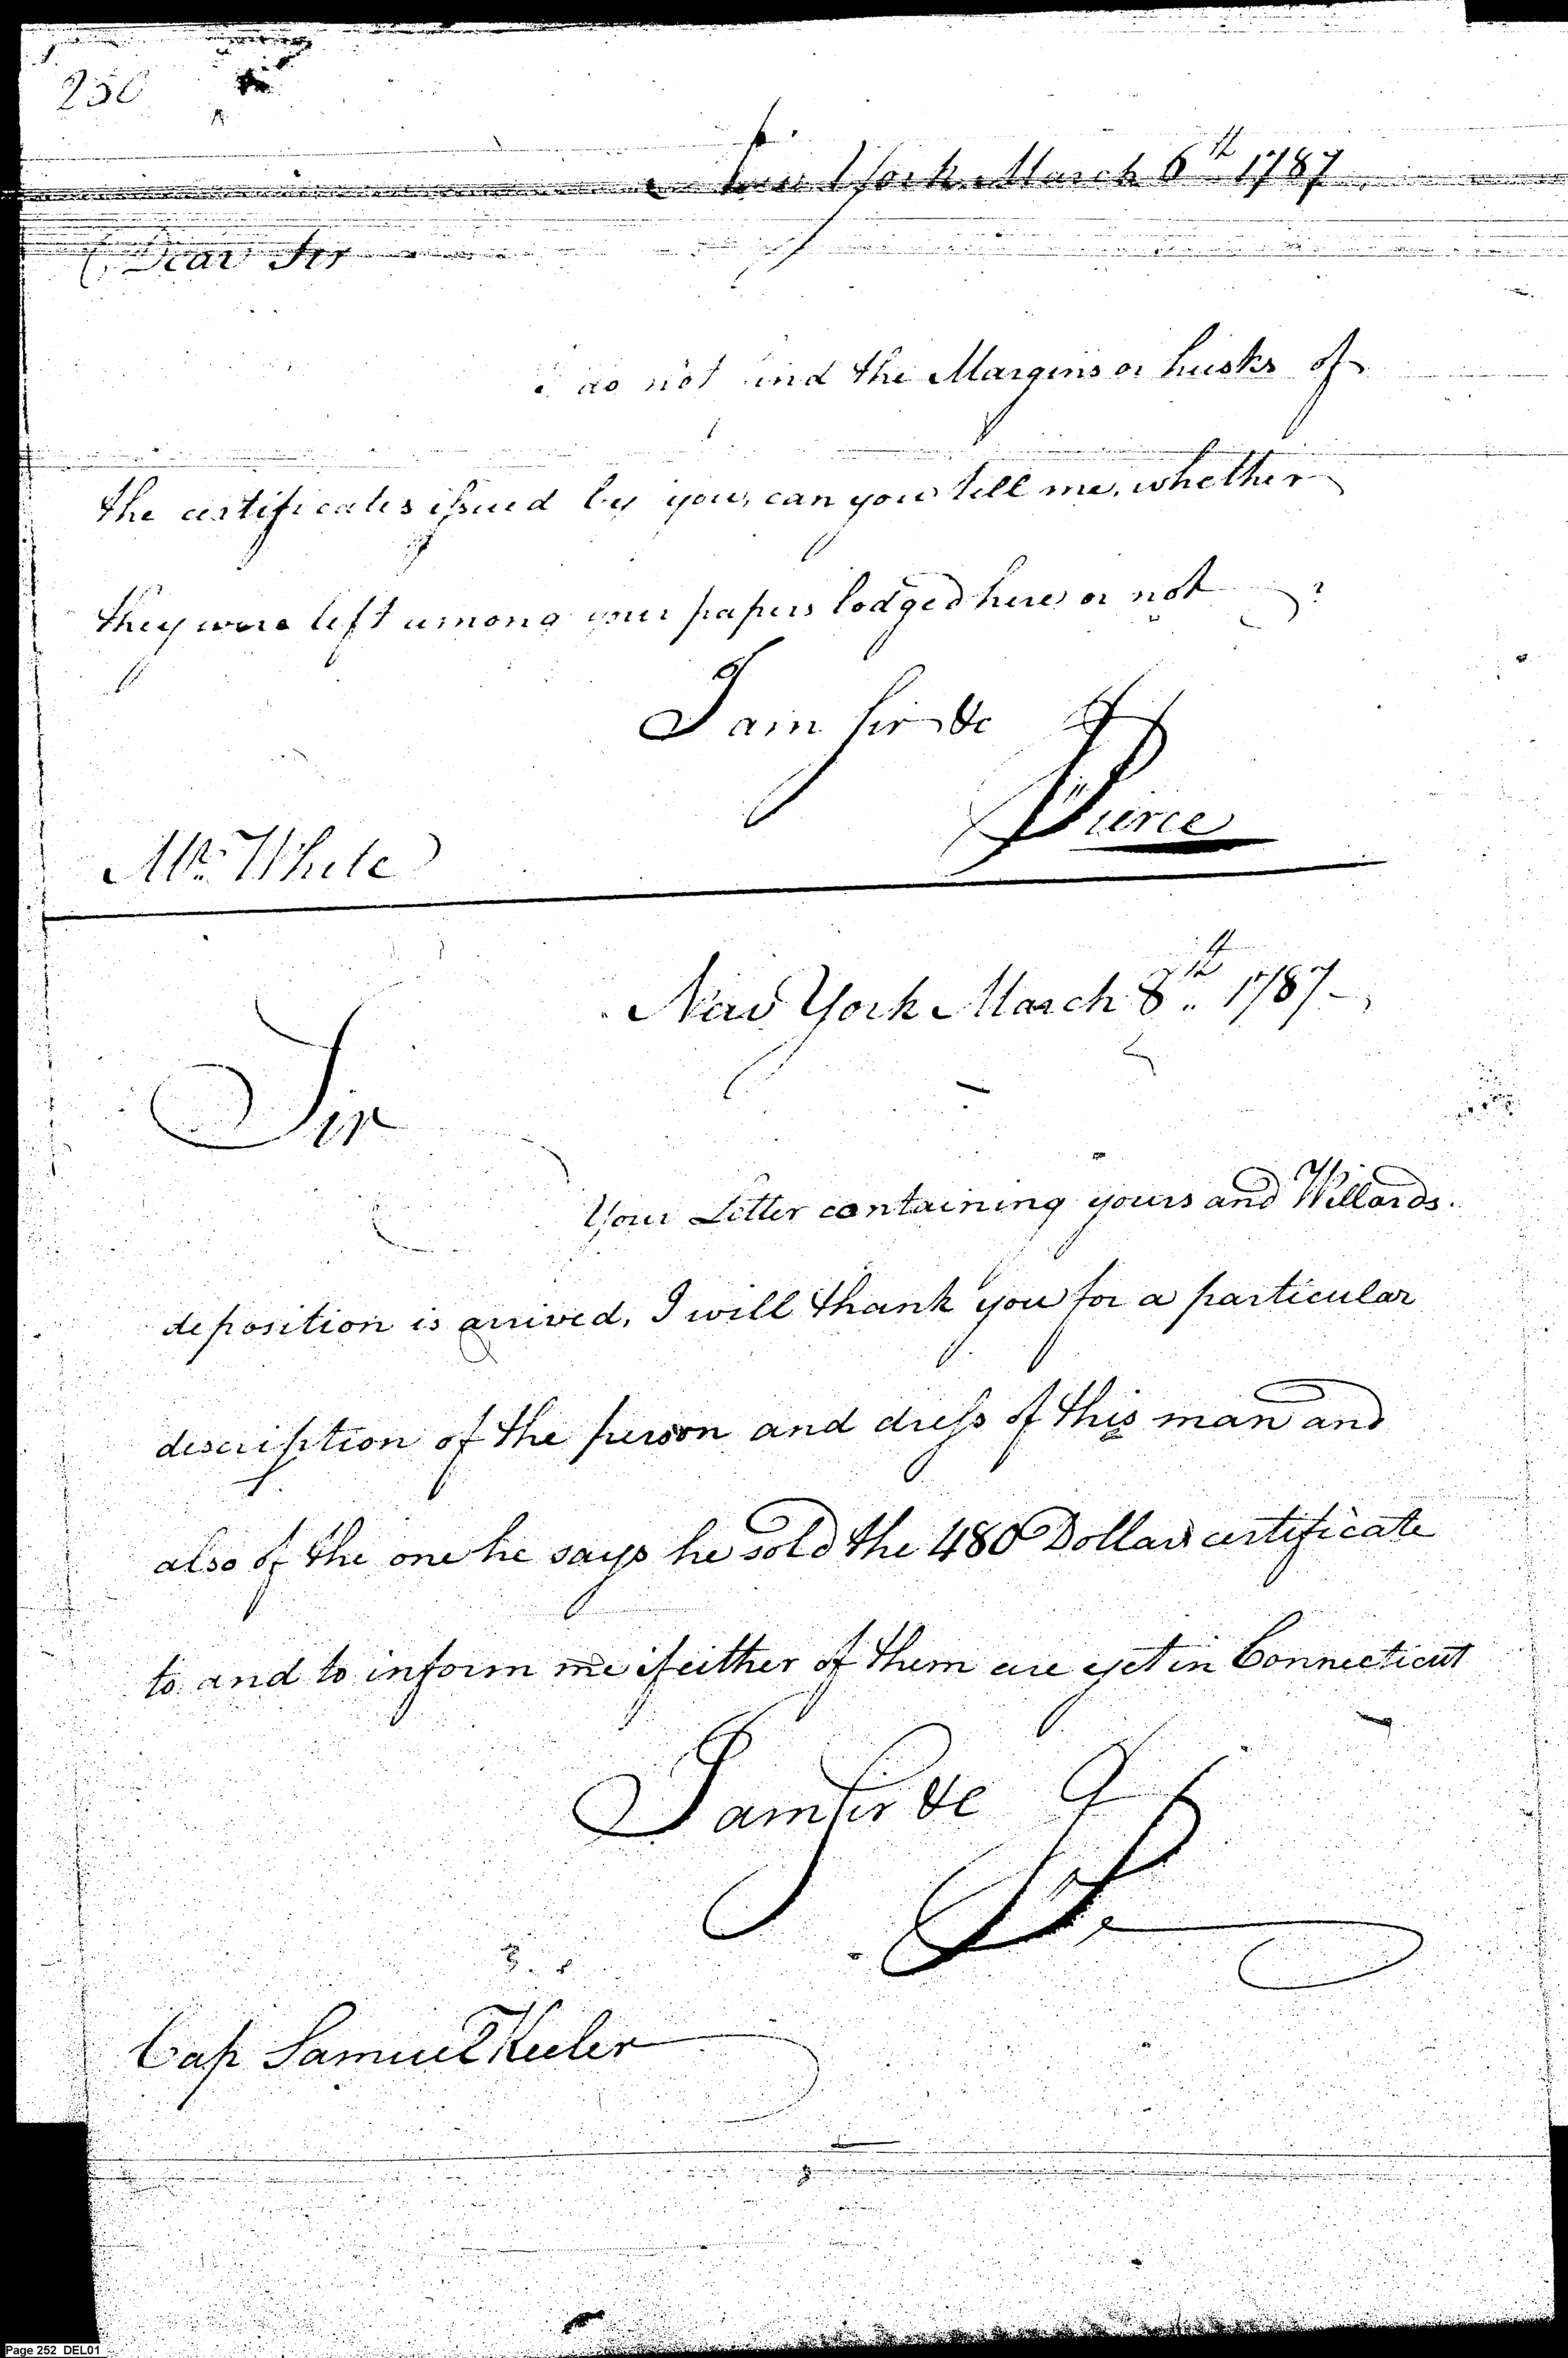 250
New York March 6th 1787
Dear Sir
I do not find the Margins or husks of
the certificates issued by you, can you tell me, whether
they were left among your papers lodged here or not ?
I am Sir &c
Pierce
Mr. White
New York March 8th 1787
Sir
Your Letter containing yours and Willards.
deposition is arrived, I will thank you for a particular
description of the person and dress of this man and
also of the one he says he sold the 480 Dollars certificate
to and to inform me if either of them are yet in Connecticut
I am Sir &c
Cap Samuel Keeler
Page 252 DEL01